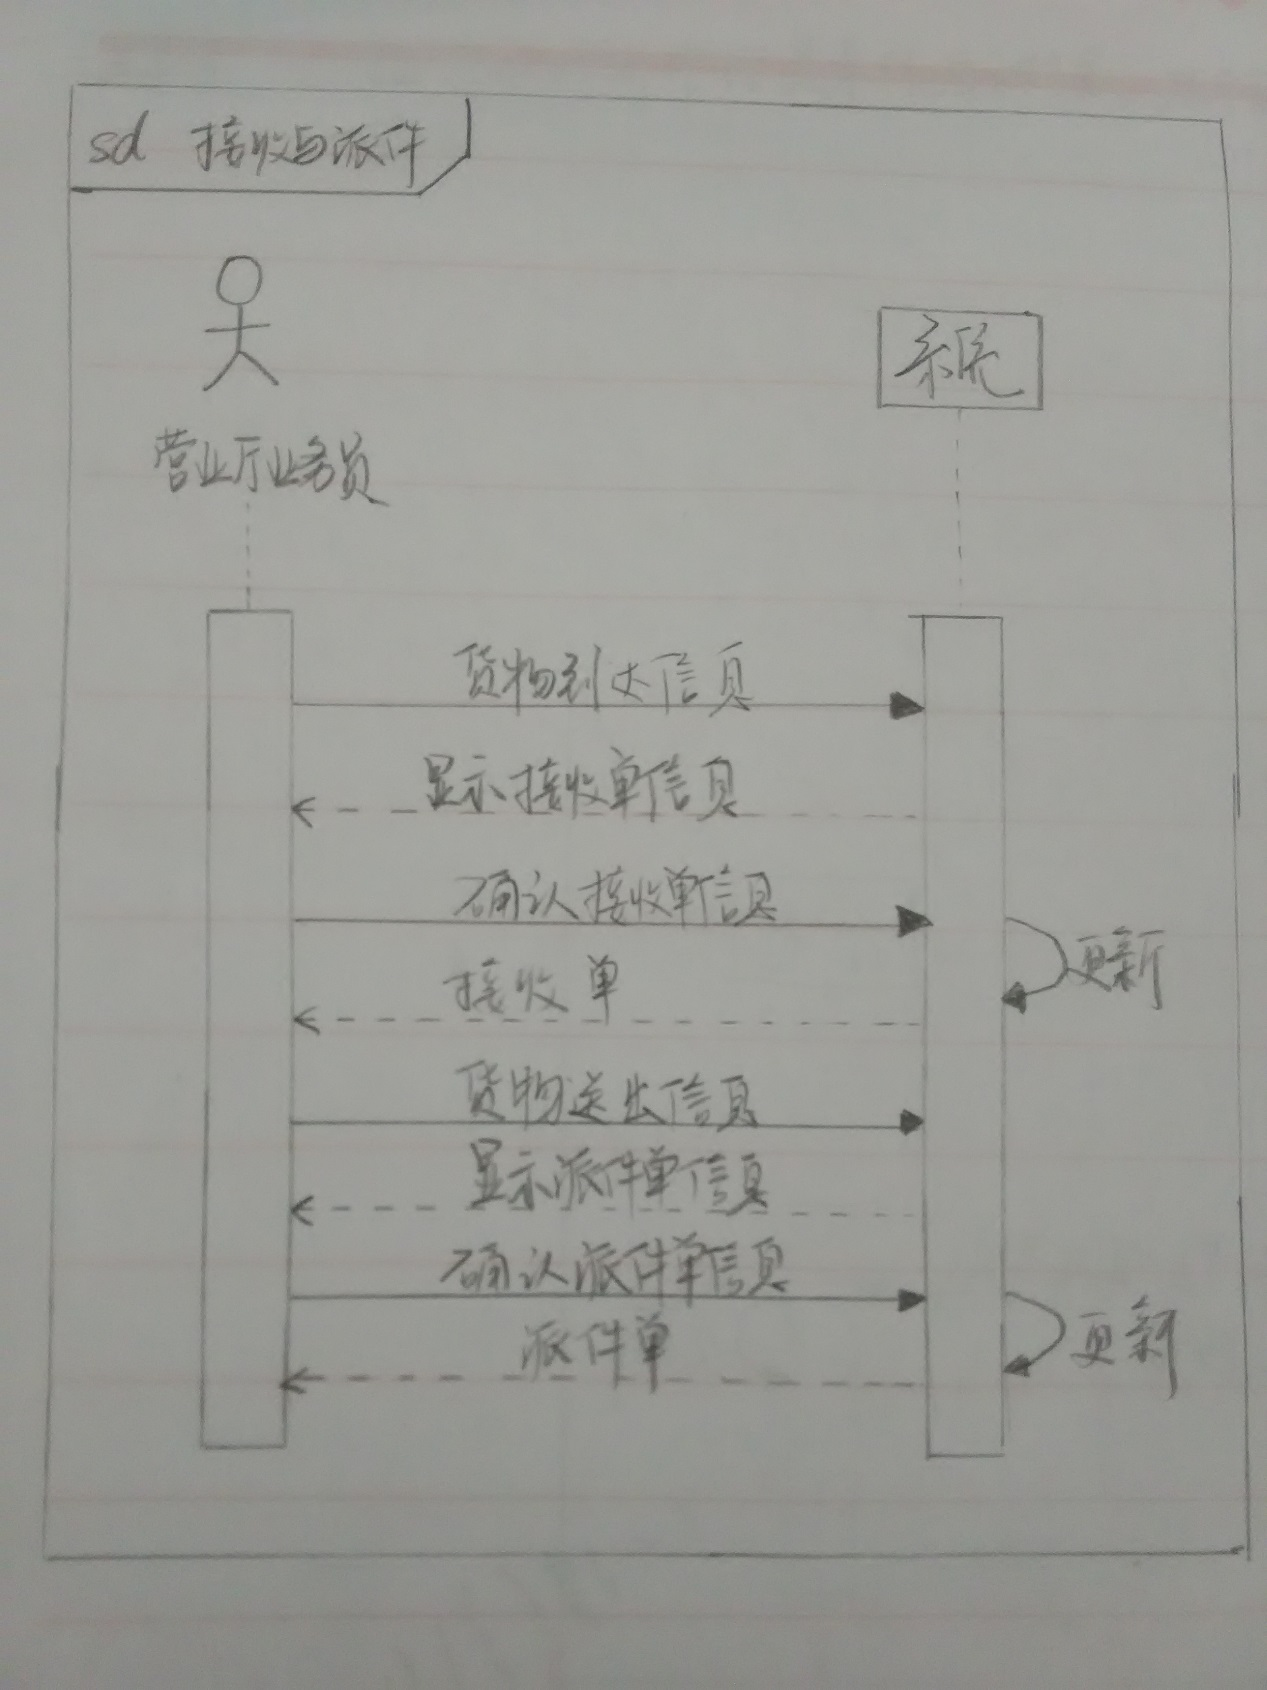 sd 接收与派件
系统
营业厅业务员
货物到达信息
显示接收单信息
确认接收单信息
更新
接收单
货物送出信息
显示派件单信息
确认派件单信息
更新
派件单